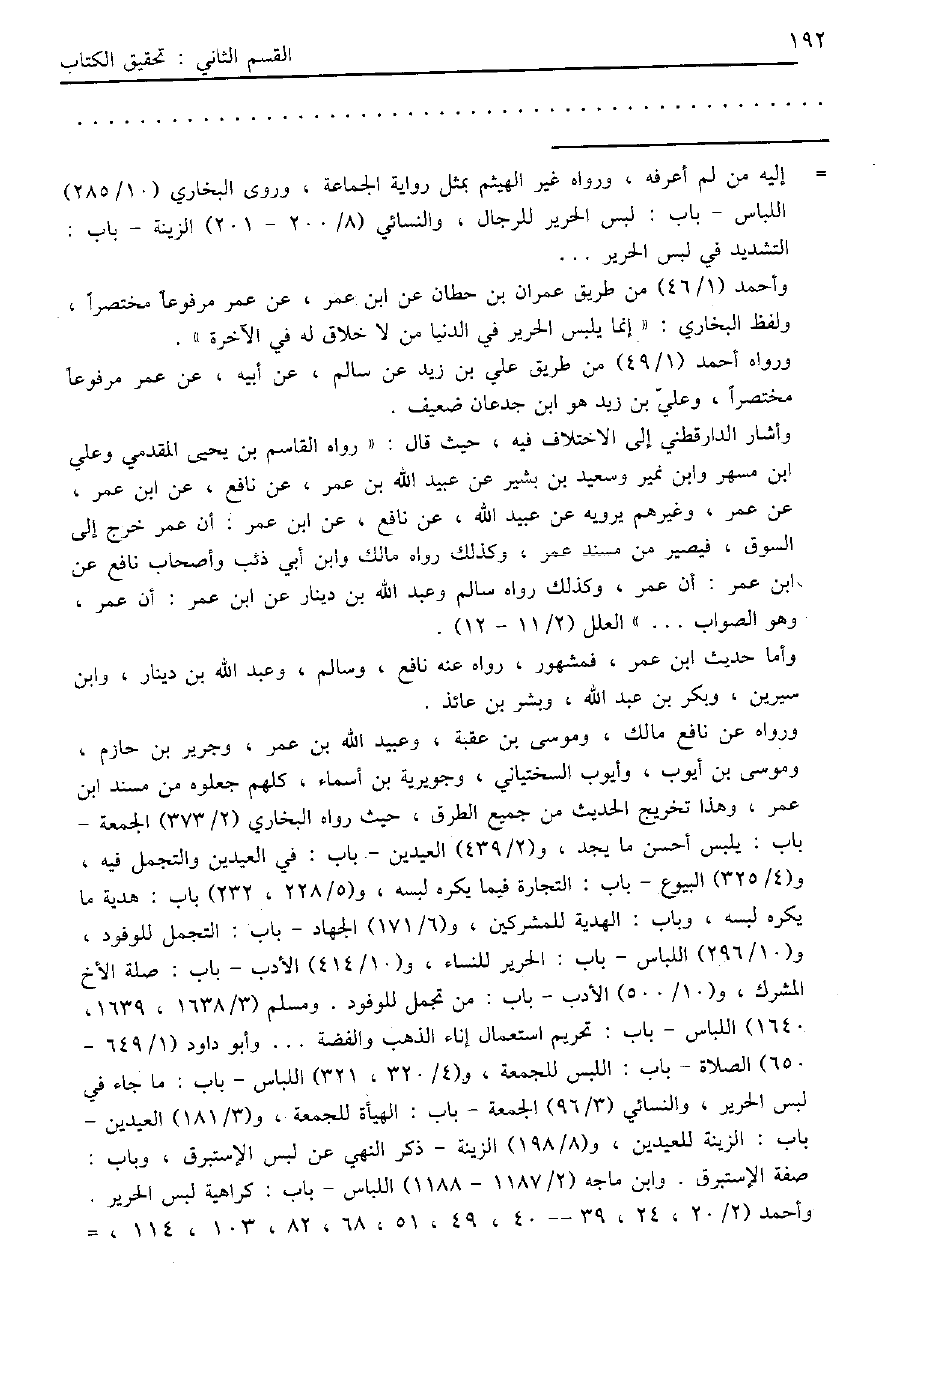 ١٩٢
القسم الثاني : تحقيق الكتاب
. . . . . . . . . . . . . . . . . . . . . . . . . . . . . . . . . . . . . . . . . . . . . . . . . . . . . . . . . .
= إليه من لم أعرفه ، ورواه غير الهيثم بمثل رواية الجماعة ، وروى البخاري (٢٨٥/١٠)
اللباس – باب : لبس الحرير للرجال ، والنسائي (٢٠٠/٨ – ٢٠١) الزينة – باب :
التشديد في لبس الحرير . . .
وأحمد (٤٦/١) من طريق عمران بن حطان عن ابن عمر ، عن عمر مرفوعاً مختصراً ،
ولفظ البخاري : « إنما يلبس الحرير في الدنيا من لا خلاق له في الآخرة » .
ورواه أحمد (٤٩/١) من طريق علي بن زيد عن سالم ، عن أبيه ، عن عمر مرفوعاً
مختصراً ، وعليّ بن زيد هو ابن جدعان ضعيف .
وأشار الدارقطني إلى الاختلاف فيه ، حيث قال : « رواه القاسم بن يحيى المقدمي وعلي
ابن مسهر وابن نمير وسعيد بن بشير عن عبيد الله بن عمر ، عن نافع ، عن ابن عمر ،
عن عمر ، وغيرهم يرويه عن عبيد الله ، عن نافع ، عن ابن عمر : أن عمر خرج إلى
السوق ، فيصير من مسند عمر ، وكذلك رواه مالك وابن أبي ذئب وأصحاب نافع عن
ابن عمر : أن عمر ، وكذلك رواه سالم وعبد الله بن دينار عن ابن عمر : أن عمر ،
وهو الصواب . . . » العلل (١١/٢ – ١٢) .
وأما حديث ابن عمر ، فمشهور ، رواه عنه نافع ، وسالم ، وعبد الله بن دينار ، وابن
سيرين ، وبكر بن عبد الله ، وبشر بن عائذ .
ورواه عن نافع مالك ، وموسى بن عقبة ، وعبيد الله بن عمر ، وجرير بن حازم ،
وموسى بن أيوب ، وأيوب السختياني ، وجويرية بن أسماء ، كلهم جعلوه من مسند ابن
عمر ، وهذا تخريج الحديث من جميع الطرق ، حيث رواه البخاري (٣٧٣/٢) الجمعة –
باب : يلبس أحسن ما يجد ، و(٤٣٩/٢) العيدين – باب : في العيدين والتجمل فيه ،
و(٣٢٥/٤) البيوع – باب : التجارة فيما يكره لبسه ، و(٢٢٨/٥ ، ٢٣٢) باب : هدية ما
يكره لبسه ، وباب : الهدية للمشركين ، و(١٧١/٦) الجهاد – باب : التجمل للوفود ،
و(٢٩٦/١٠) اللباس – باب : الحرير للنساء ، و(٤١٤/١٠) الأدب – باب : صلة الأخ
المشرك ، و(٥٠٠/١٠) الأدب – باب : من تجمل للوفود . ومسلم (١٦٣٨/٣ ، ١٦٣٩،
١٦٤٠) اللباس – باب : تحريم استعمال إناء الذهب والفضة . . . وأبو داود (٦٤٩/١ –
٦٥٠) الصلاة – باب : اللبس للجمعة ، و(٣٢٠/٤ ، ٣٢١) اللباس – باب : ما جاء في
لبس الحرير ، والنسائي (٩٦/٣) الجمعة – باب : الهيأة للجمعة ، و(١٨١/٣) العيدين –
باب : الزينة للعيدين ، و(١٩٨/٨) الزينة – ذكر النهي عن لبس الإستبرق ، وباب :
صفة الإستبرق . وابن ماجه (١١٨٧/٢ – ١١٨٨) اللباس – باب : كراهية لبس الحرير .
وأحمد (٢٠/٢ ، ٢٤ ، ٣٩ –– ٤٠ ، ٤٩ ، ٥١ ، ٦٨ ، ٨٢ ، ١٠٣ ، ١١٤ ، =